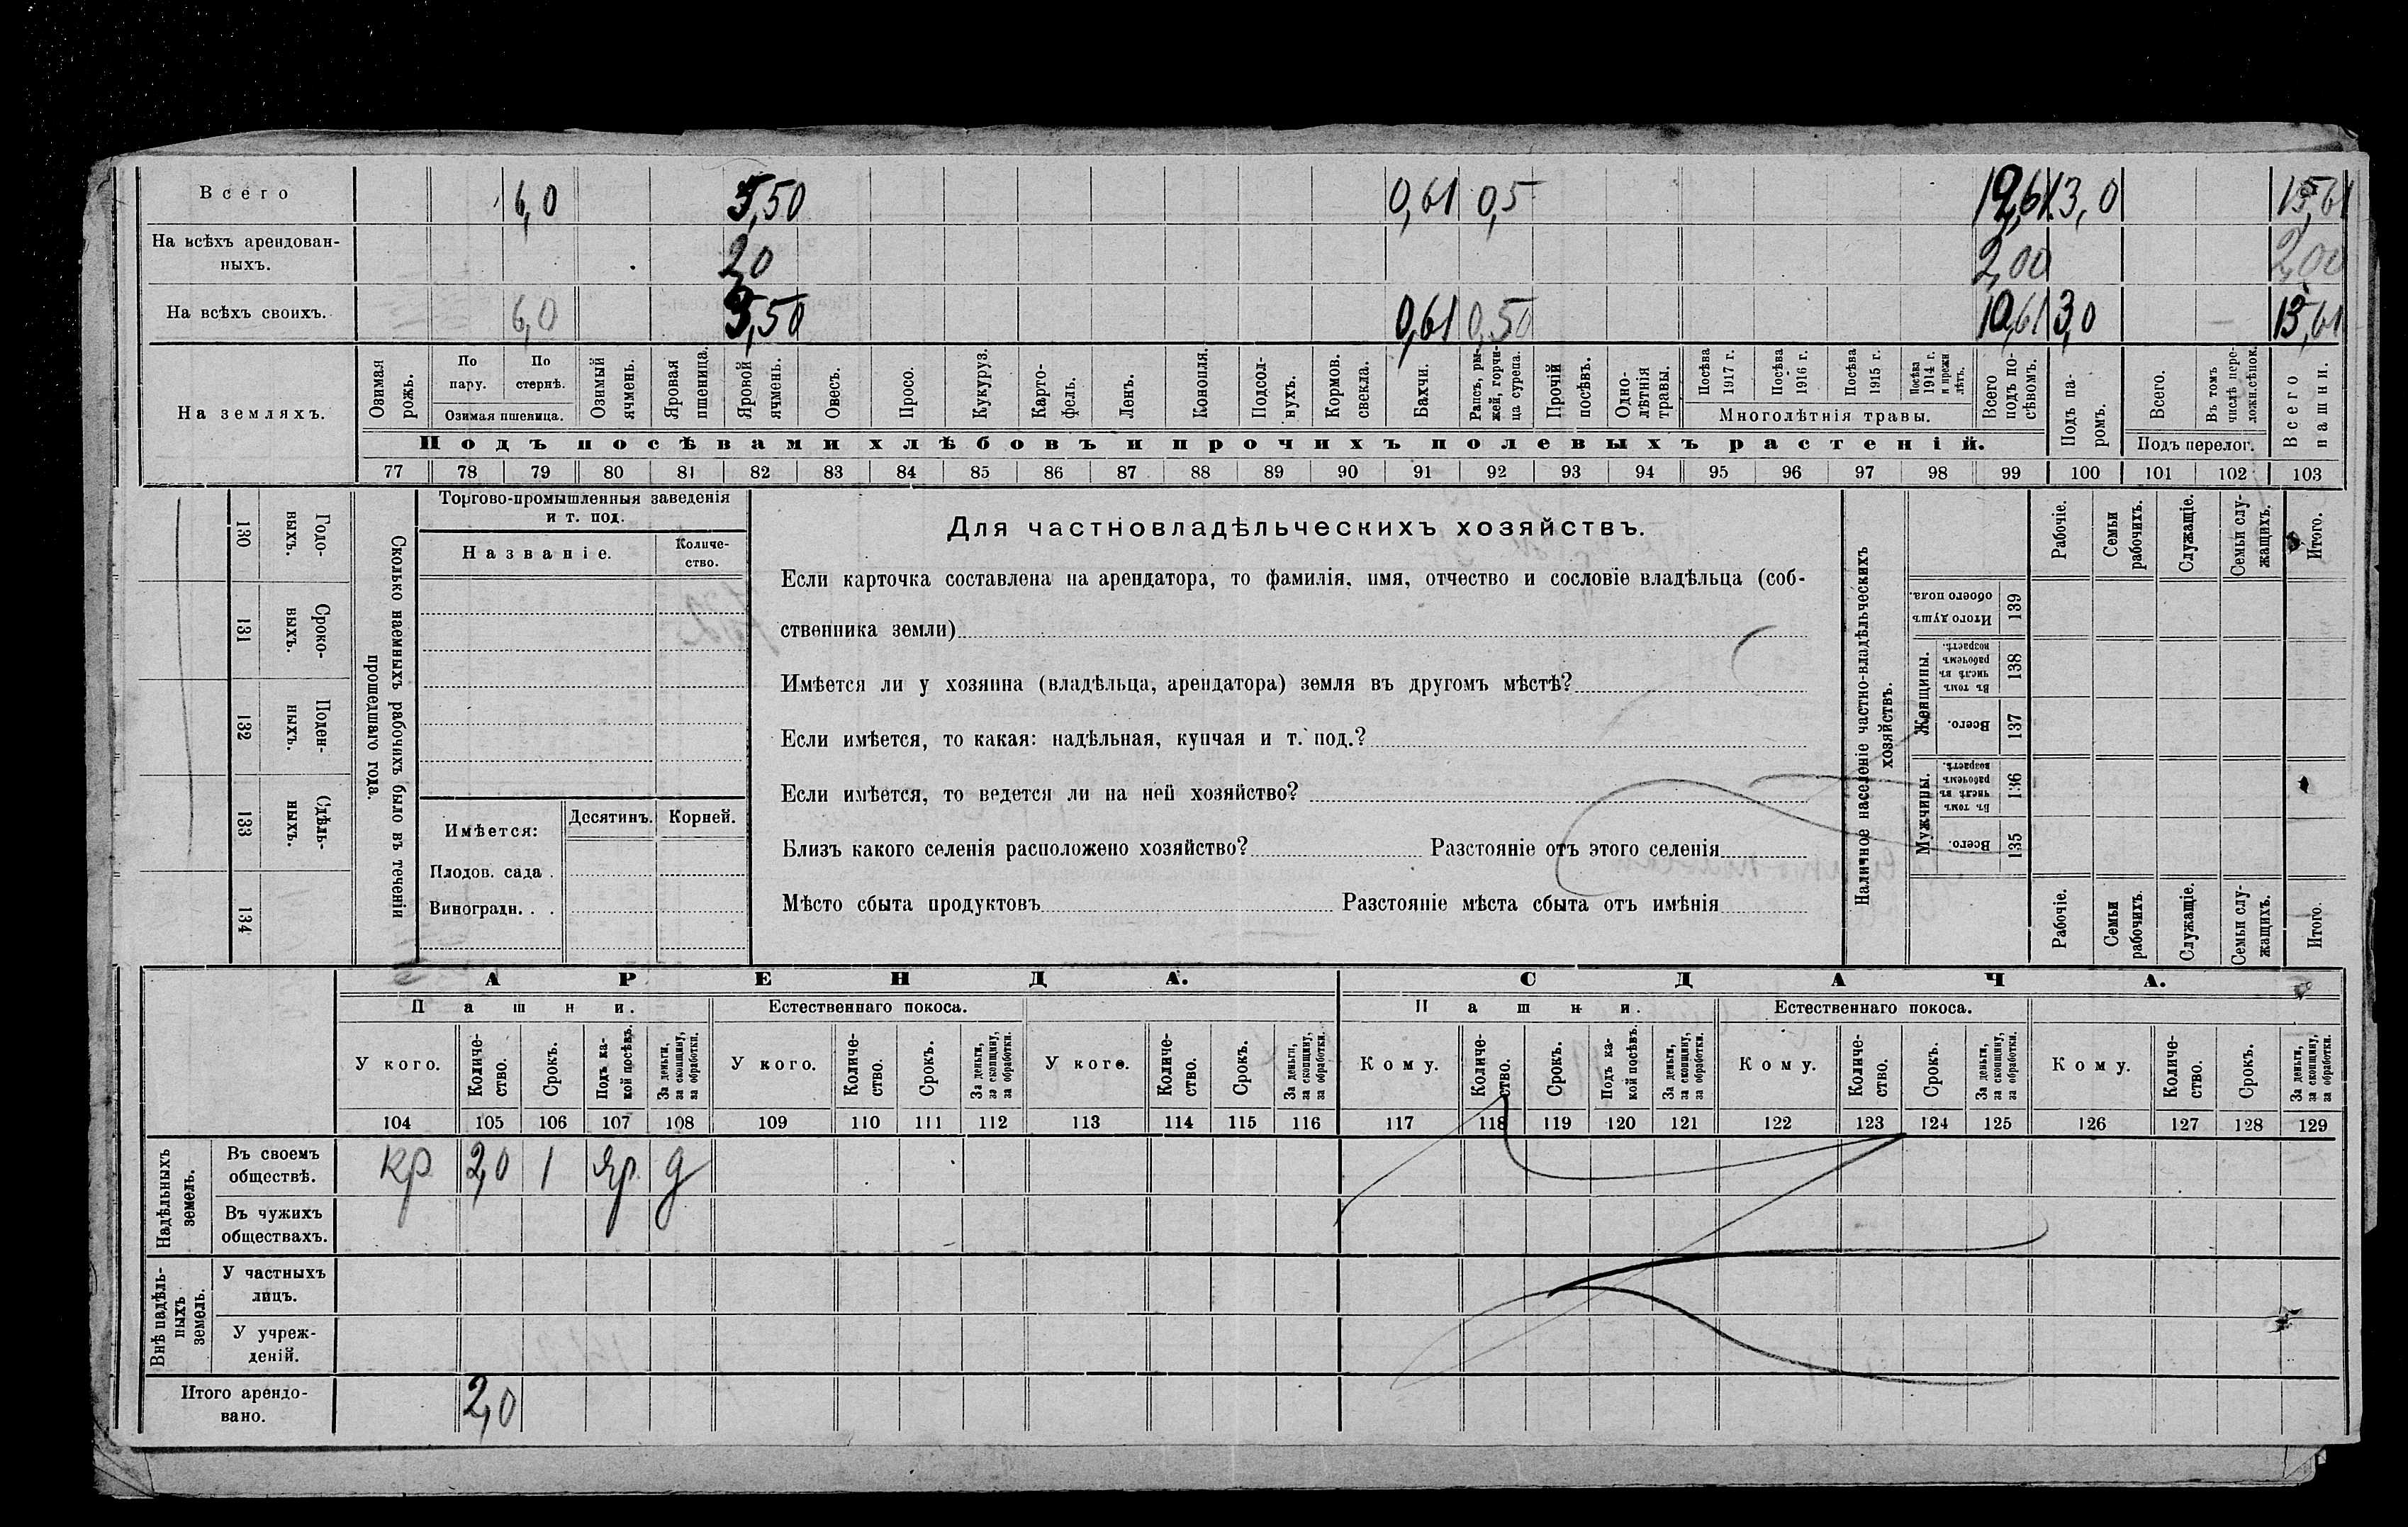 Всего 6,0 5,50 0,61 0,5 12,61 3,0 15,61
На всѣхъ арендован-
ныхъ. 2,0 2,00 2,00
На всѣхъ своихъ. 6,0 3,50 0,61 0,50 10,61 3,0 13,61
На земляхъ.
Озимая рожь.
По пару.
По стернѣ.
Озимая пшеница.
Озимый ячмень.
Яровая пшеница.
Яровой ячмень.
Овесъ.
Просо.
Кукуруз.
Карто-
фель.
Ленъ.
Конопля.
Подсол-
нухъ.
Кормов.
свекла.
Бахчи.
Рапсъ, ры-
жей, горчи-
ца сурепа.
Прочій
посѣвъ.
Одно-
лѣтнія
травы.
Посѣва
1917 г.
Посѣва
1916 г.
Посѣва
1915 г.
Посѣва
1914 г.
и прежн
лѣтъ.
Многолѣтнія травы.
Всего
подъ по-
сѣвомъ.
Подъ па-
ромъ.
Всего.
Въ томъ
числѣ пере-
ложн.сѣнок.
Подъ перелог.
Всего
пашни.
Подъ посѣвами хлѣбовъ и прочихъ полевыхъ растеній.
77 78 79 80 81 82 83 84 85 86 87 88 89 90 91 92 93 94 95 96 97 98 99 100 101 102 103
130 Годо-
выхъ.
131 Сроко-
выхъ.
132 Поден-
ныхъ.
133 Сдѣль-
ныхъ.
134
Сколько наемныхъ рабочихъ было въ теченіи
прошедшаго года.
Торгово-промышленныя заведенія
и т. под.
Названіе.
Количе-
ство.
Имѣется:
Десятинъ. Корней.
Плодов. сада .
Виноградн. . .
Для частновладѣльческихъ хозяйствъ.
Если карточка составлена на арендатора, то фамилія, имя, отчество и сословіе владѣльца (соб-
ственника земли)
Имѣется ли у хозяина (владѣльца, арендатора) земля въ другомъ мѣстѣ?
Если имѣется, то какая: надѣльная, купчая и т. под.?
Если имѣется, то ведется ли на ней хозяйство?
Близъ какого селенія расположено хозяйство? Разстояніе отъ этого селенія
Мѣсто сбыта продуктовъ Разстояніе мѣста сбыта отъ имѣнія
Наличное населеніе частно-владѣльческихъ
хозяйствъ.
Рабочіе.
Семьи
рабочихъ.
Служащіе.
Семьи слу-
жащихъ.
Итого.
Итого душъ
обоего пола.
139
Женщины.
Въ томъ
числѣ въ
рабочемъ
возрастѣ.
138
Всего.
137
Мужчины.
Въ томъ
числѣ въ
рабочемъ
возрастѣ.
136
Всего.
135
Рабочіе.
Семьи
рабочихъ.
Служащіе.
Семьи слу-
жащихъ.
Итого.
АРЕНДА. СДАЧА.
Пашни. Естественнаго покоса. Пашни. Естественнаго покоса.
У кого.
Количе-
ство.
Срокъ.
Подъ ка-
кой посѣвъ.
За деньги,
за скопщину,
за обработки.
У кого.
Количе-
ство.
Срокъ.
За деньги,
за скопщину,
за обработки.
У кого.
Количе-
ство.
Срокъ.
За деньги,
за скопщину,
за обработки.
Кому.
Количе-
ство.
Срокъ.
Подъ ка-
кой посѣвъ.
За деньги,
за скопщину,
за обработки.
Кому.
Количе-
ство.
Срокъ.
За деньги,
за скопщину,
за обработки.
Кому.
Количе-
ство.
Срокъ.
За деньги,
за скопщину,
за обработки.
104 105 106 107 108 109 110 111 112 113 114 115 116 117 118 119 120 121 122 123 124 125 126 127 128 129
Надѣльныхъ
земель.
Въ своемъ
обществѣ. кр 2,0 1 яр. д
Въ чужихъ
обществахъ.
Внѣ надѣль-
ныхъ
земель.
У частныхъ
лицъ.
У учреж-
деній.
Итого арендо-
вано. 2,0